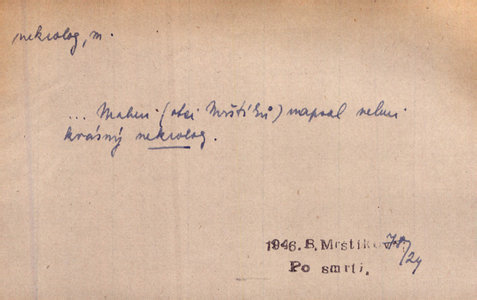 nekrolog, m.
... Mahen (otci Mrštíků) napsal velmi
krásný nekrolog.
1946. B. Mrštíkov
Po smrti. /24